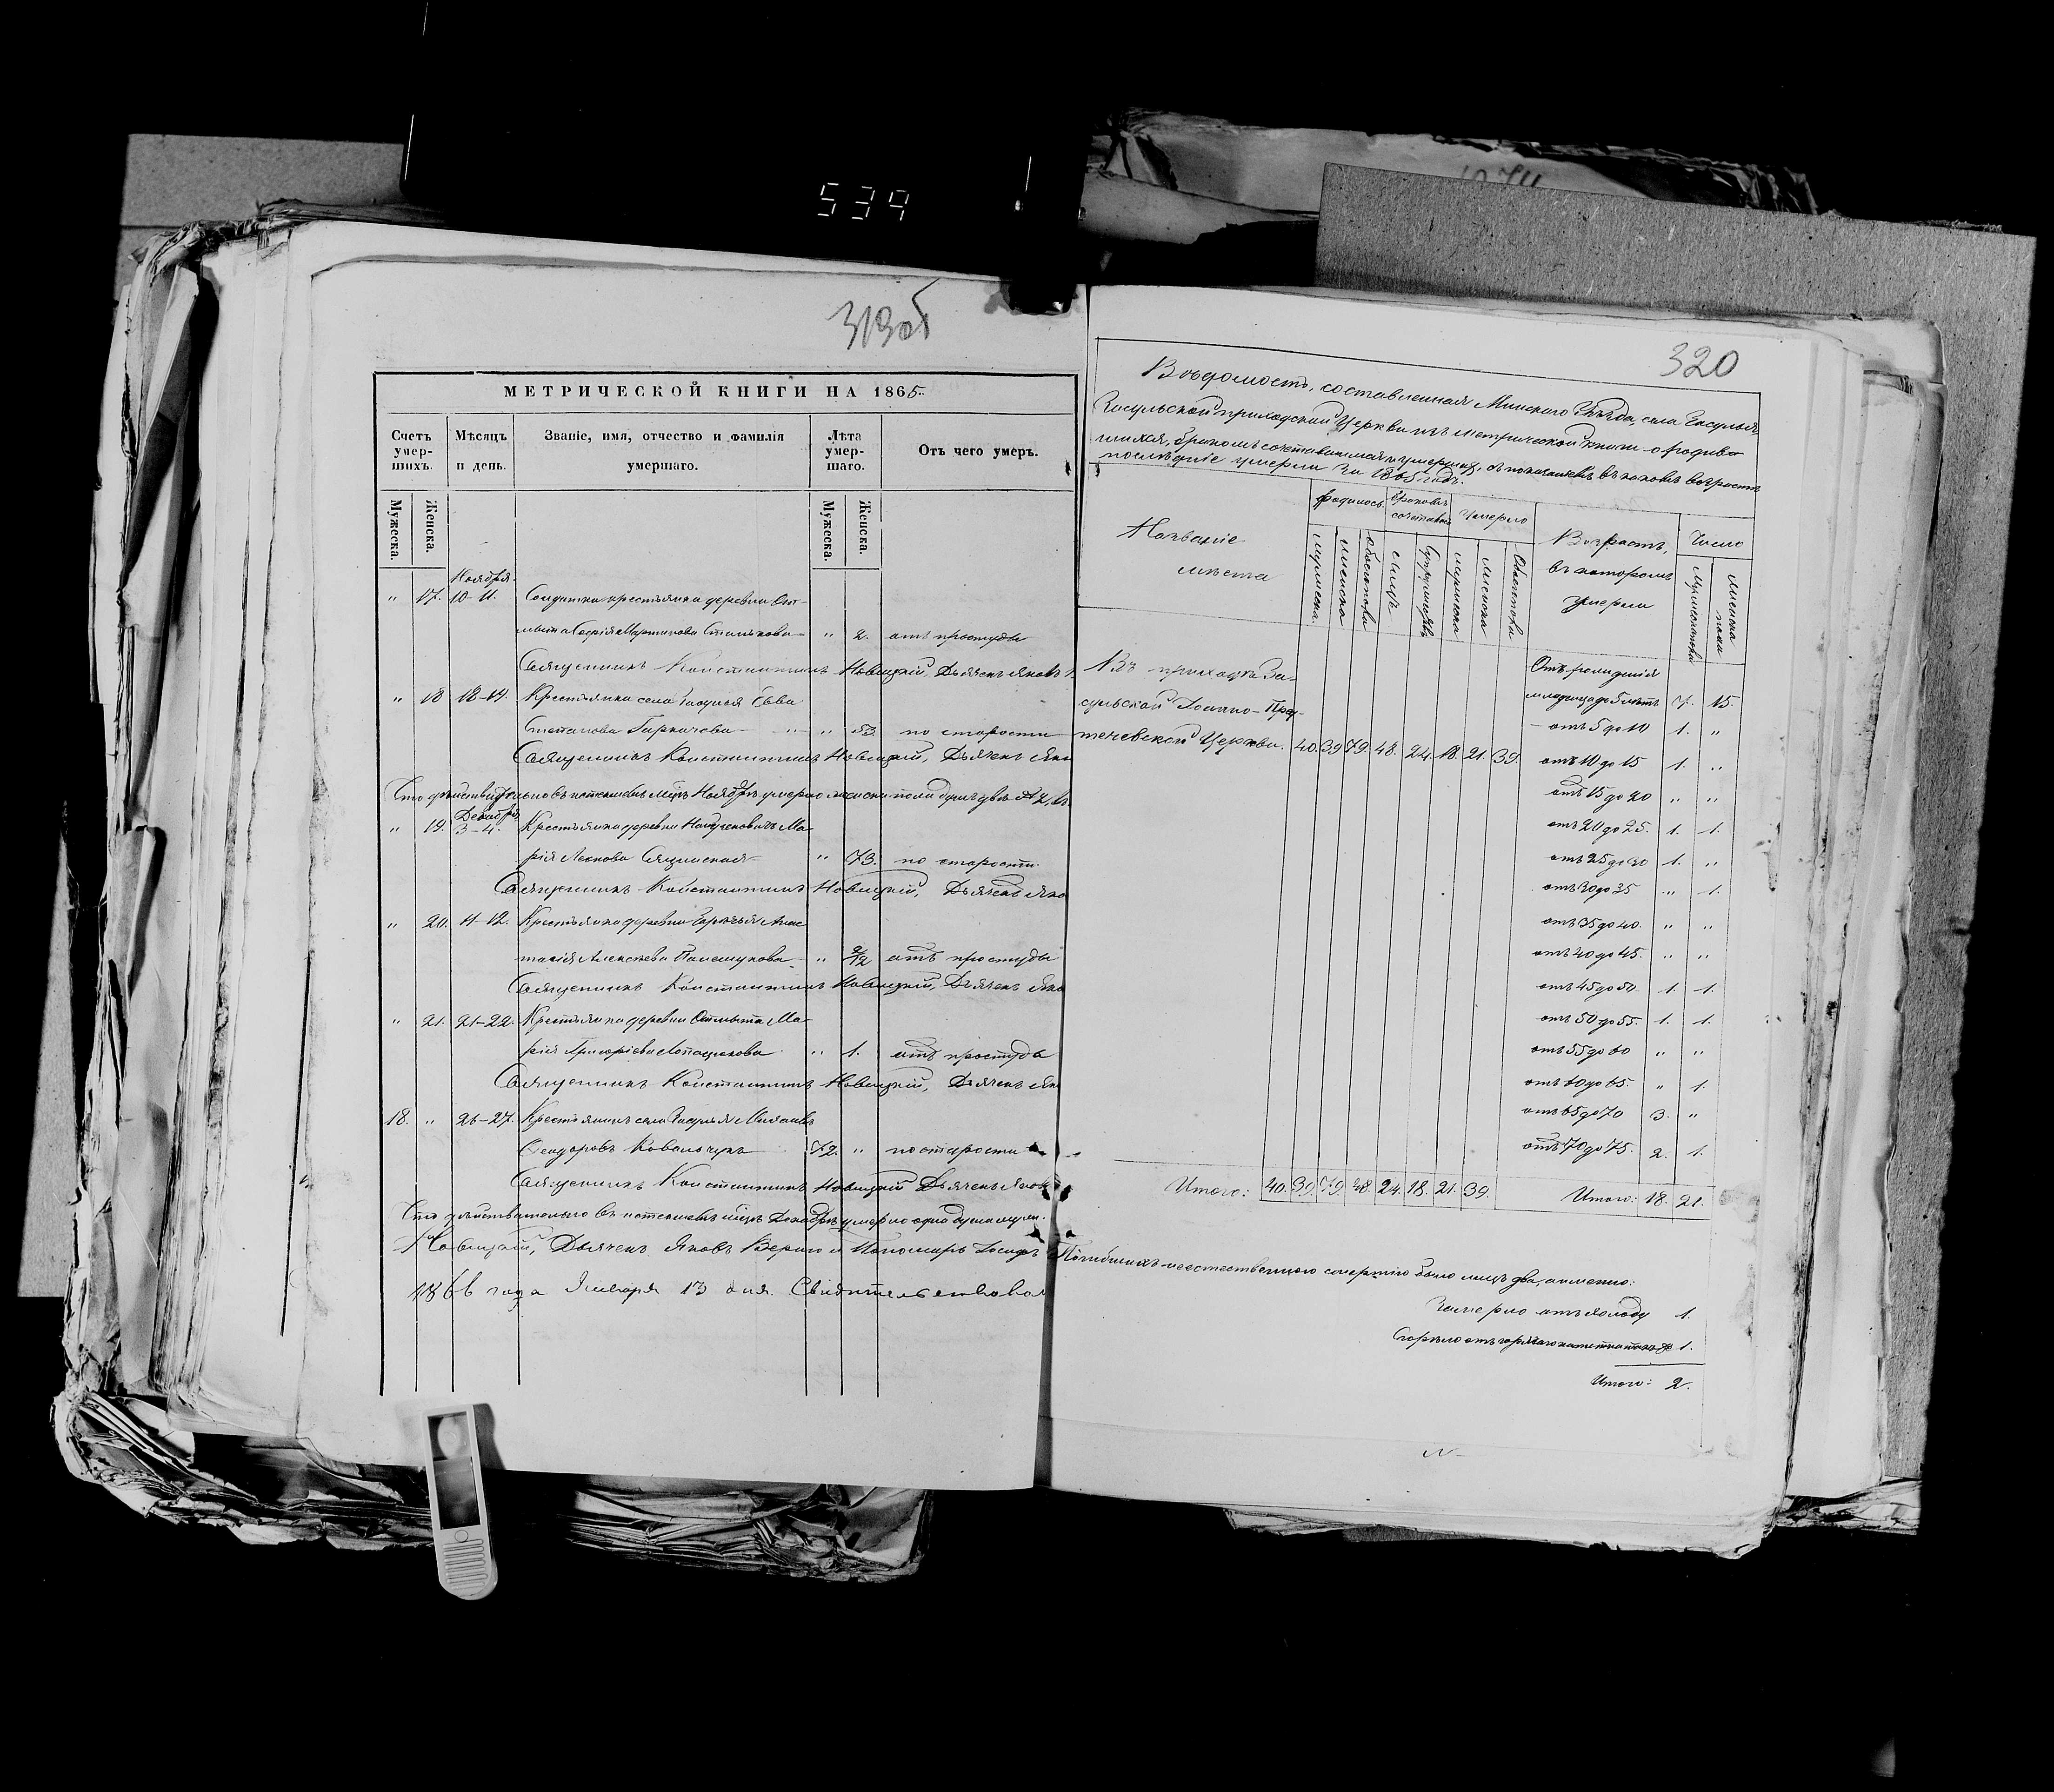 534
319 об
МЕТРИЧЕСКОЙ КНИГИ НА 1865.
Счетъ умер-шихъ.
Мѣсяцъ и день.
Званіе, имя, отчество и фамилія умершаго.
Лѣта умер-шаго.
Отъ чего умеръ.
Мужеска.
Женска.
Мужеска.
Женска.
Ноября
" 17. 10-11. Солдатка крестьянка деревни
Софія Мартинова " 2. отъ простуды
Священникъ Константинъ Новицкій, Дьячекъ Яковъ
" 18 18-19. Крестьянка села Засулья Ева
Степанова " 53. по старости
Священникъ Константинъ Новицкій, Дьячекъ Яко
Что дѣйствительно въ истекшемъ мцѣ Ноябрѣ умерло женска пола душъ двѣ
Декабря
" 19. 3-4. Крестьянка деревни Ма-
рія Леонова " 73. по старости.
Священникъ Константинъ Новицкій, Дьячекъ Яко
" 20. 11-12. Крестьянка деревни Анас
тасія Алексѣева " отъ простуды
Священникъ Константинъ Новицкій, Дьячекъ Яко
" 21. 21-22. Крестьянка деревни Ма-
рія Григоріева " 1. отъ простуды
Священникъ Константинъ Новицкій, Дьячекъ Як
18. " 26-27. Крестьянинъ села Засулья
Ѳеодоровъ Ковальчукъ 72. " по старости
Священникъ Константинъ Новицкій Дьячекъ Яков
Что дѣйствительно въ истекшемъ мцѣ Декабрѣ умерло одна душа муж.
Новицкій, Дьячекъ Яковъ и Пономарь Іосифъ
1866 года Января 13 дня. Свидѣтельствовал
320
Вѣдомость, составленная Минскаго Уѣзда, села Засулья
Засульской приходской Церкви изъ метрической книги о родив-
шихся, бракомъ сочетавшихся и умершихъ, съ показаніемъ въ какомъ возрастѣ
послѣдніе умерли за 1865 годъ.
Названіе мѣста
Родилось
Браковъ сочетаній
Умерло
Возрастъ, въ которомъ умерли
Число
мужеска.
женска
обоего пола
лицъ
Супружествъ
мужеска
женска
Обоего пола
мужеска пола
женска пола
Въ приходѣ За-
сульской Іоанно-Пред-
течевской Церкви. 40. 39 79. 48. 24. 18. 21. 39.
Отъ рожденія
младенца до 5 лѣтъ 7. 15.
отъ 5 до 10 1. "
отъ 10 до 15 1. "
отъ 15 до 20 " "
отъ 20 до 25. 1. 1.
отъ 25 до 30 1. "
отъ 30 до 35 " 1.
отъ 35 до 40. " "
отъ 40 до 45. " "
отъ 45 до 50. 1. 1.
отъ 50 до 55. 1. 1.
отъ 55 до 60 " "
отъ 60 до 65. " 1.
отъ 65 до 70 3. "
отъ 70 до 75. 2. 1.
Итого: 40. 39. 79. 48. 24. 18. 21. 39. Итого: 18. 21.
Погибшихъ неестественною смертію было лицъ два, а именно:
Умерло отъ холоду 1.
Сгорѣло отъ 1.
Итого: 2.